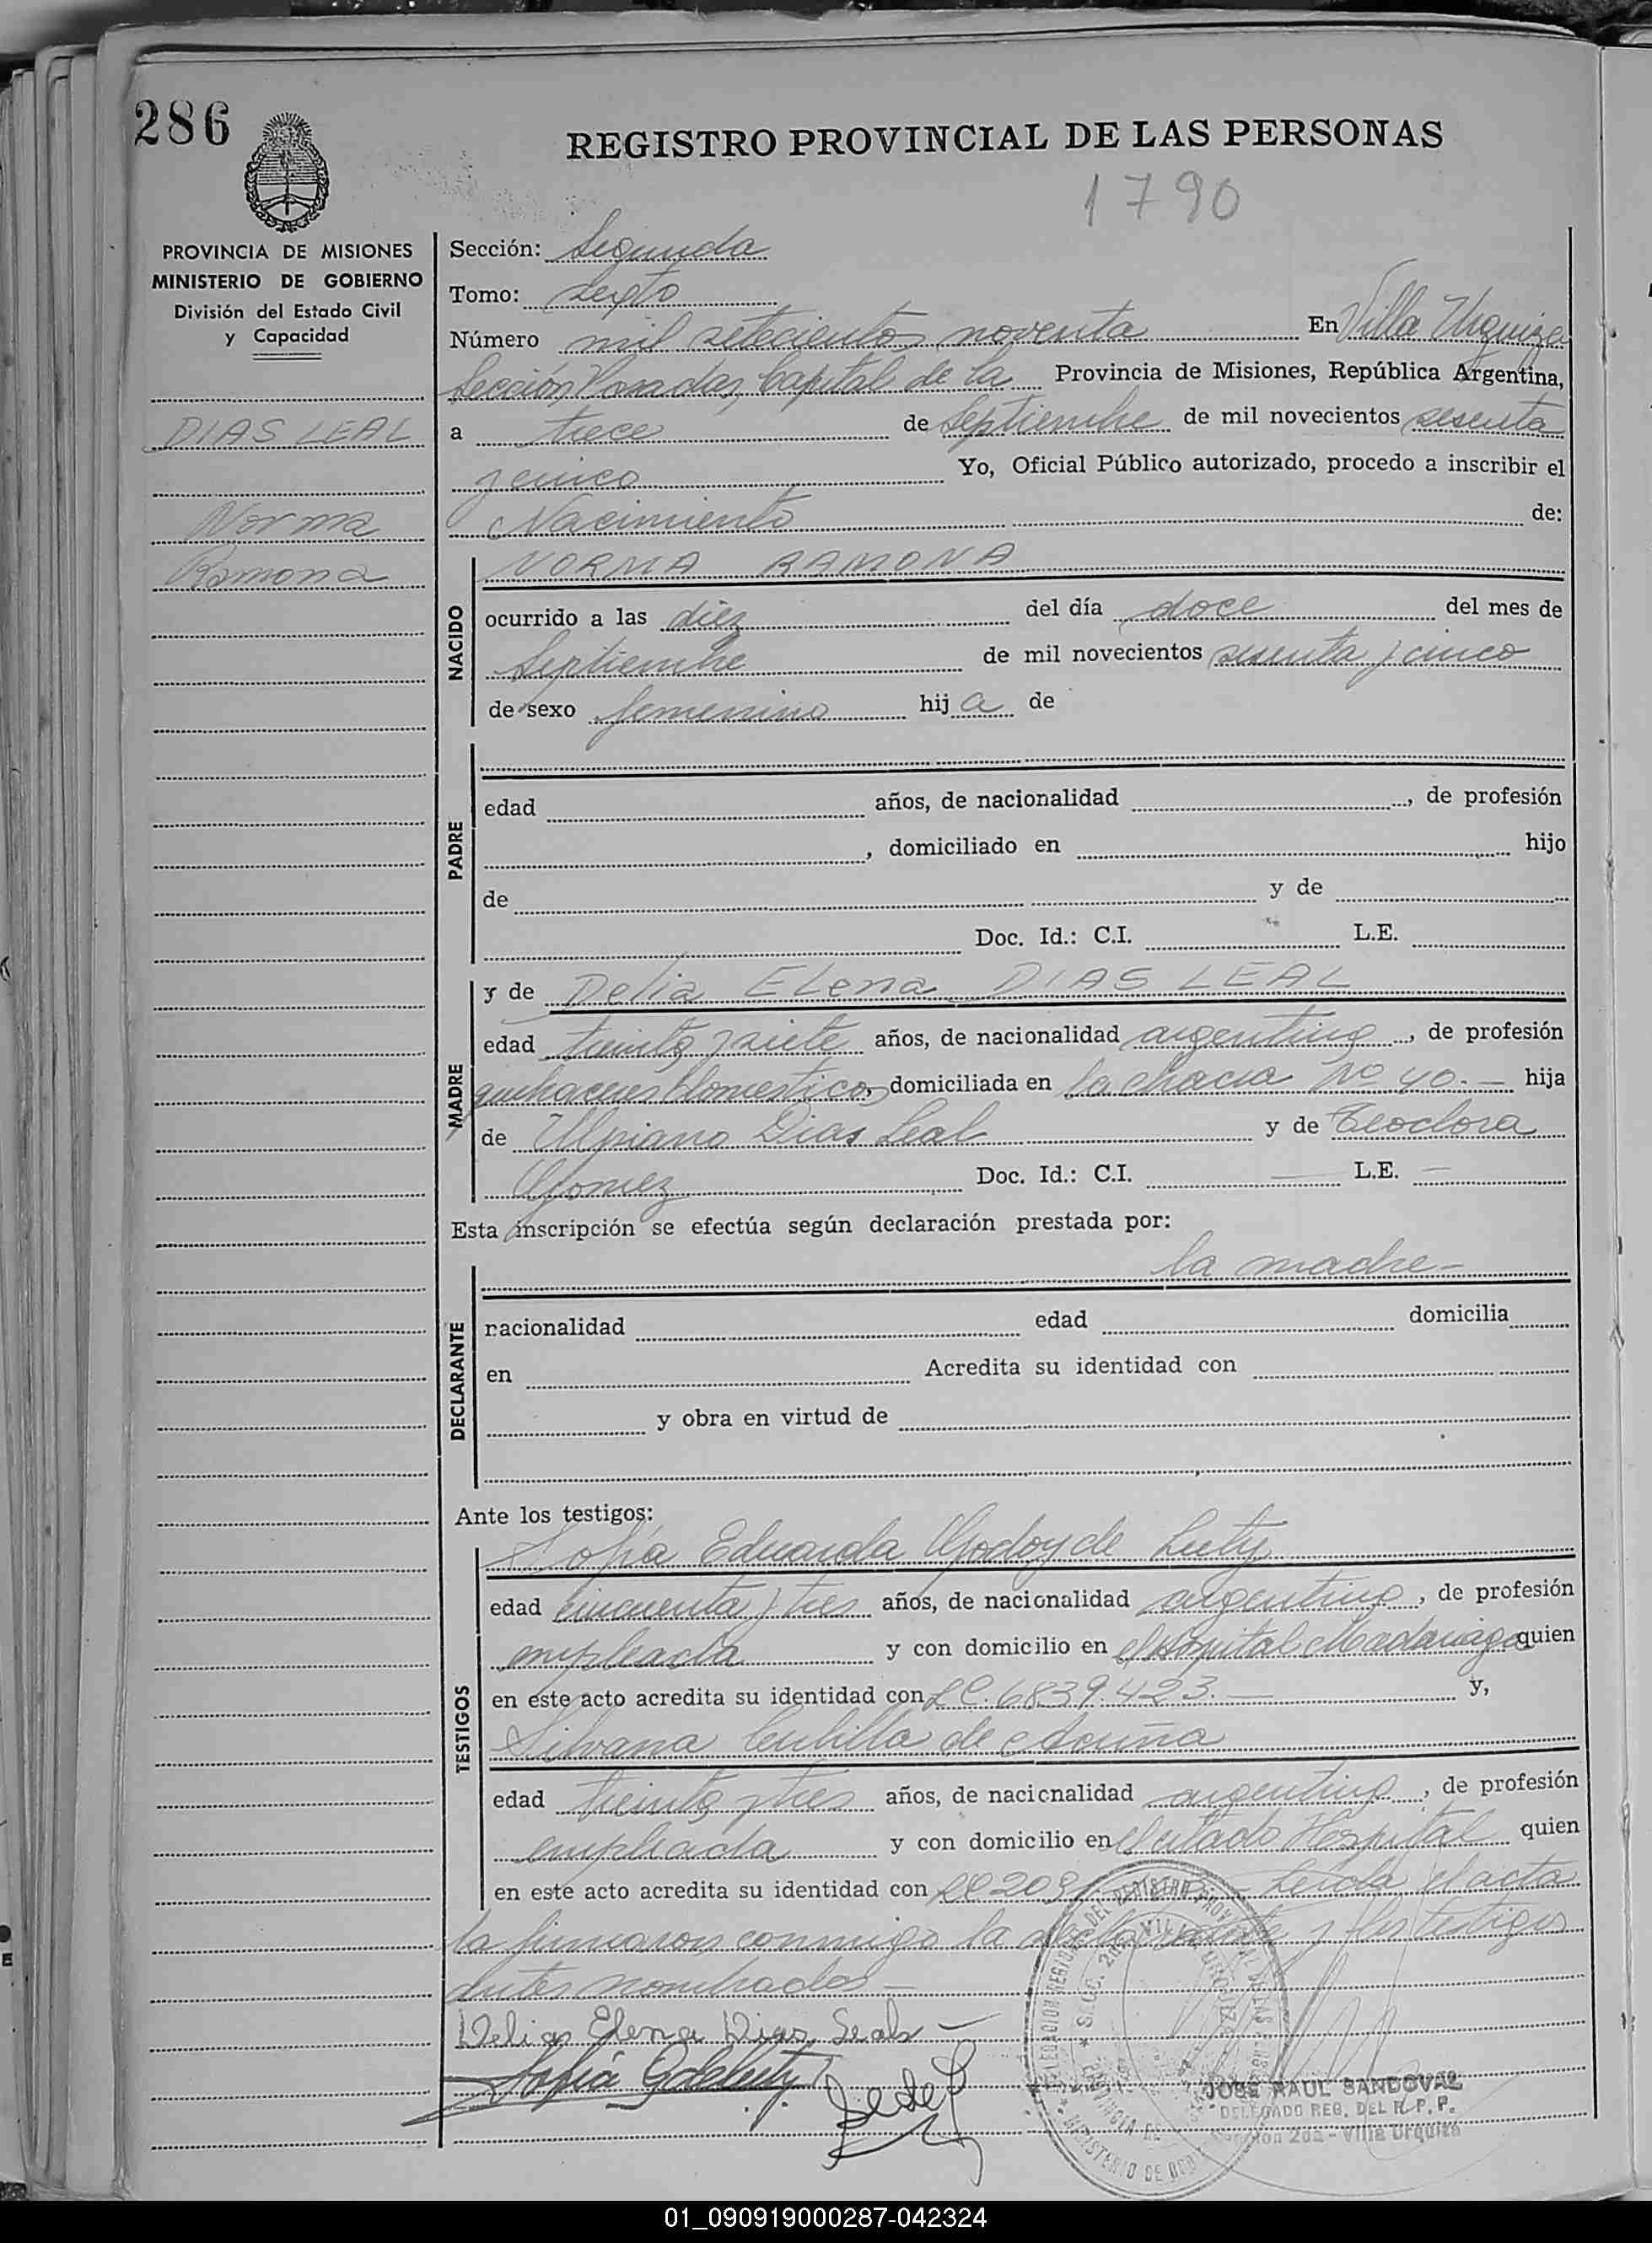 286
REGISTRO PROVINCIAL DE LAS PERSONAS
1790
PROVINCIA DE MISIONES
MINISTERIO DE GOBIERNO
División del Estado Civil
y Capacidad
DIAS LEAL
Norma
Ramona
Sección: Segunda
Tomo: Sexto
Número mil setecientos noventa En Villa Urquiza
Sección Posadas, Capital de la Provincia de Misiones, República Argentina,
a trece de Septiembre de mil novecientos sesenta
y cinco Yo, Oficial Público autorizado, procedo a inscribir el
Nacimiento de:
NACIDO
NORMA RAMONA
ocurrido a las diez del día doce del mes de
Septiembre de mil novecientos sesenta y cinco
de sexo femenino hij a de
PADRE
edad años, de nacionalidad , de profesión
, domiciliado en hijo
de y de
Doc. Id.: C.I. L.E.
MADRE
y de Delia Elena DIAS LEAL
edad treinta y siete años, de nacionalidad argentina, de profesión
quehaceres domesticos, domiciliada en la chacra Nº 40.- hija
de Ulpiano Dias Leal y de Teodora
Gomez Doc. Id.: C.I. — L.E. —
Esta inscripción se efectúa según declaración prestada por:
DECLARANTE
la madre-
nacionalidad edad domicilia
en Acredita su identidad con
y obra en virtud de
Ante los testigos:
TESTIGOS
Sofía Eduarda Godoy de Luty
edad cincuenta y tres años, de nacionalidad argentina, de profesión
empleada y con domicilio en el Hospital Madariaga quien
en este acto acredita su identidad con LC. 6839.423.— y,
Silvana Cubilla de Acuña
edad treinta y tres años, de nacionalidad argentina, de profesión
empleada y con domicilio en el citado Hospital quien
en este acto acredita su identidad con LC 209 Leída el acta
la firmaron conmigo la declarante y los testigos
antes nombrados-
Delia Elena Dias Leal -
JOSE RAUL SANDOVAL
DELEGADO REG. DEL R. P. P.
Sección 2da - Villa Urquiza
01_090919000287-042324